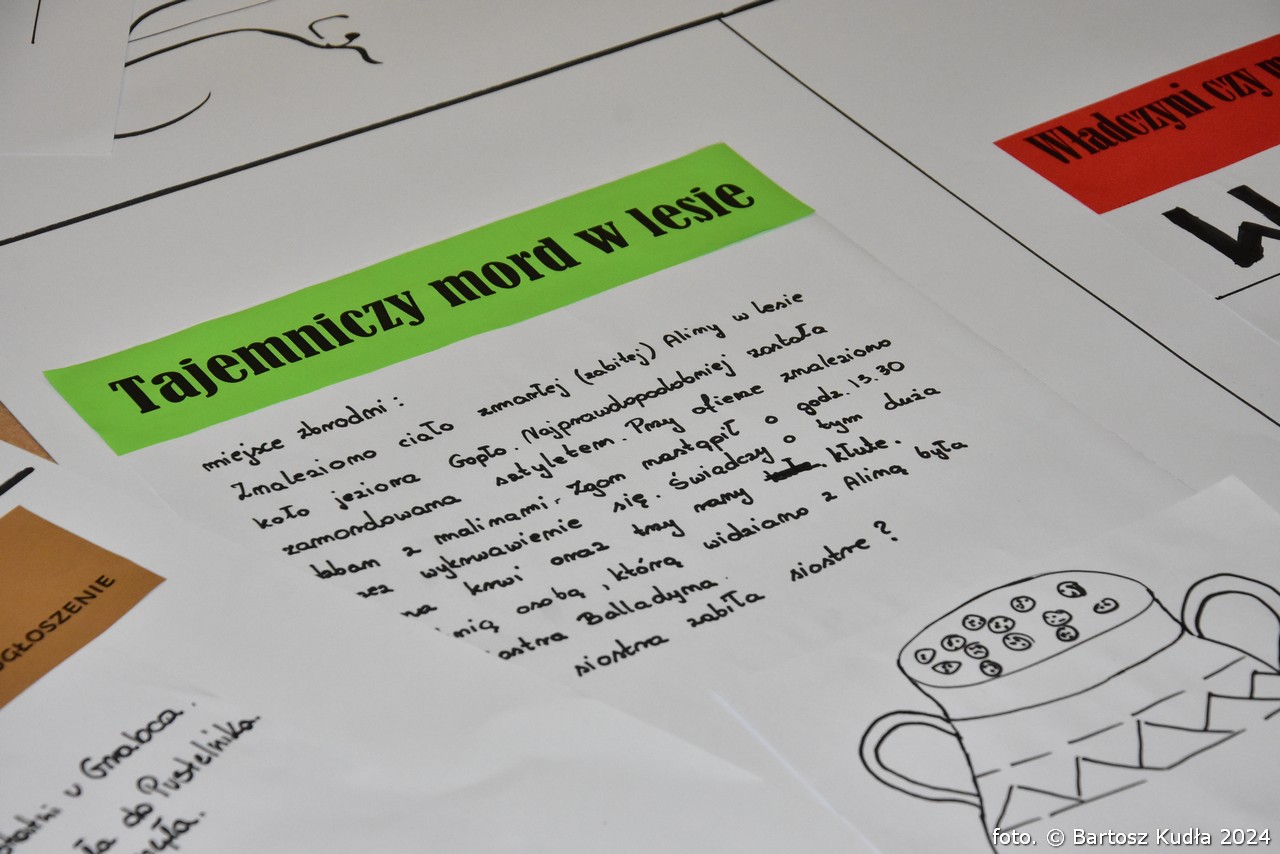 Władczyni czy m
W
Tajemniczy mord w lesie
miejsce zbrodni:
Znaleziono ciało zmarłej (zabiłej) Aliny w lesie
koło jeziora Gopło. Najprawdopodobniej została
zamordowana sztyletem. Przy ofierze znaleziono
dzban z malinami. Zgon nastąpił o godz. 13.30
zez wykrwawienie się. Świadczy o tym duża
na krwi oraz trzy rany kłute.
nią osobą, którą widziano z Aliną była
ostra Balladyna.
siostra zabiła siostrę?
OGŁOSZENIE
u Grabca.
ła do Pustelnika
foto. © Bartosz Kudła 2024